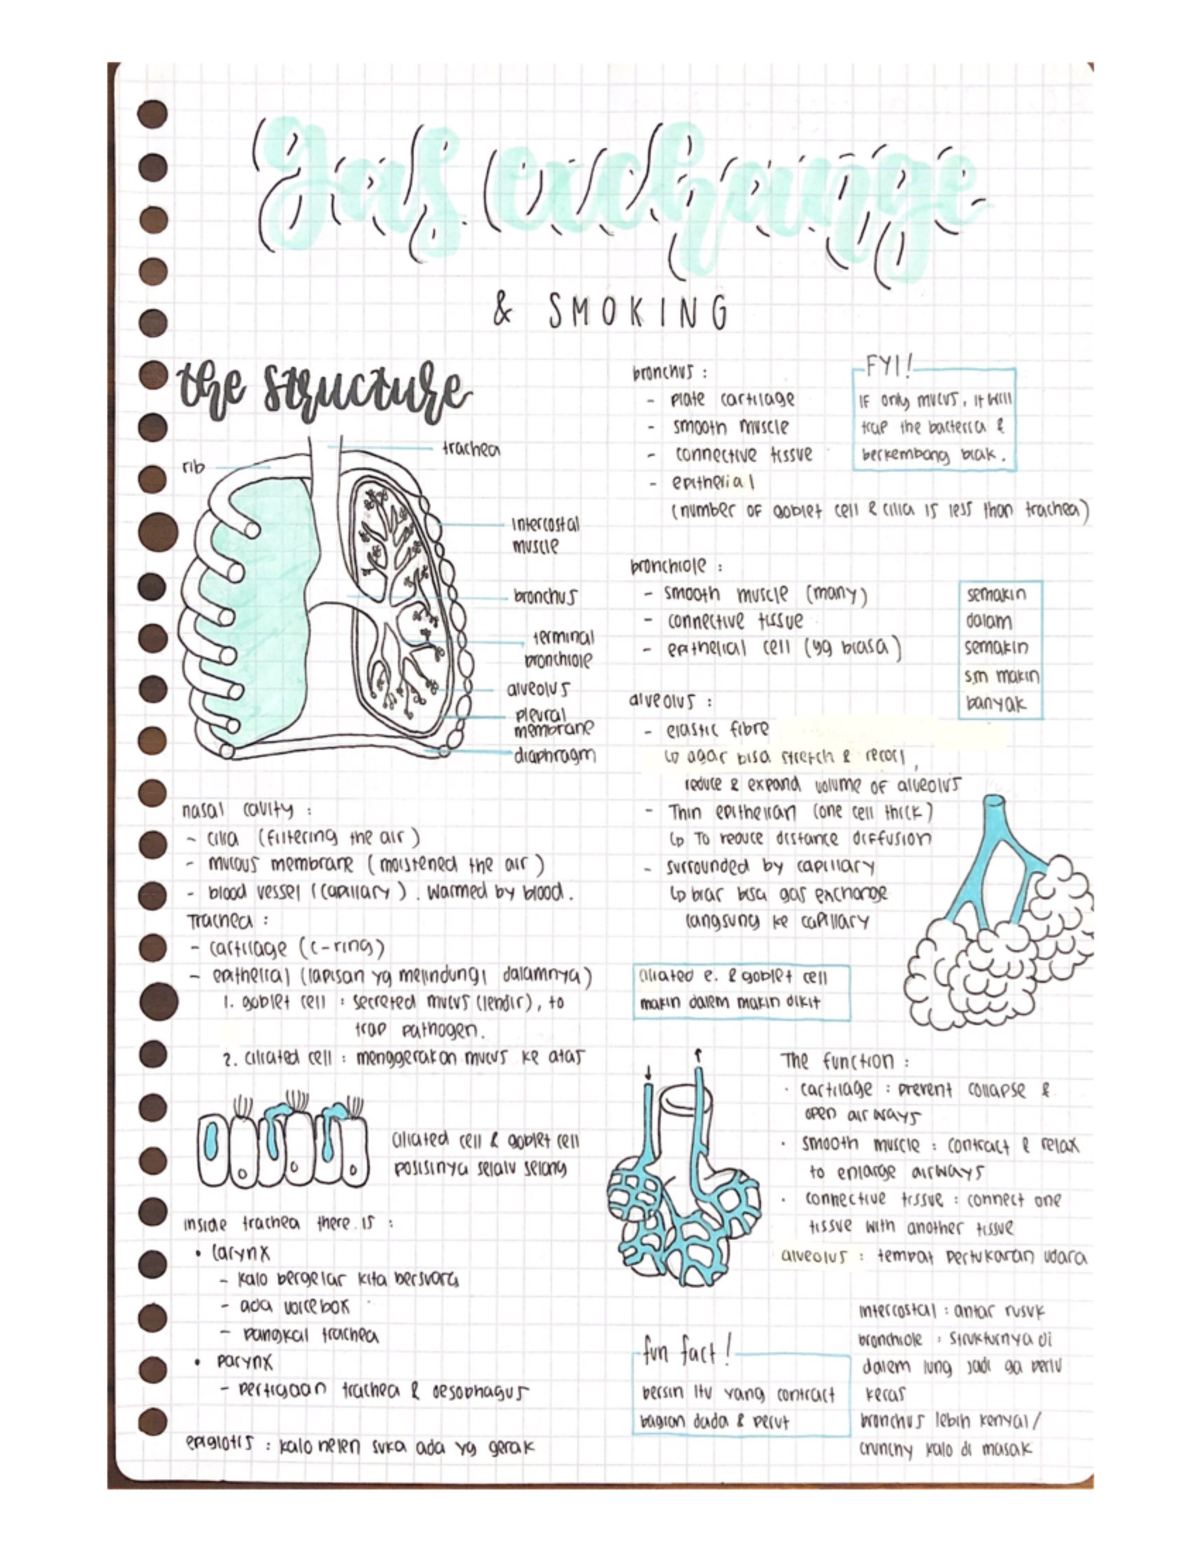 gas exchange
& SMOKING
the structure
rib
trachea
intercostal
muscle
bronchus
terminal
bronchiole
alveolus
pleural
membrane
diaphragm
nasal cavity :
- cilia (filtering the air)
- mucous membrane (moistened the air)
- blood vessel (capillary). warmed by blood.
Trachea :
- cartilage (c-ring)
- epithelial (lapisan yg melindungi dalamnya)
1. goblet cell : secreted mucus (lendir), to
trap pathogen.
2. ciliated cell : menggerakan mucus ke atas
ciliated cell & goblet cell
posisinya selalu selang
inside trachea there is :
• larynx
- kalo bergetar kita bersuara
- ada voicebox
- pangkal trachea
• parynx
- pertigaan trachea & oesophagus
epiglotis : kalo nelen suka ada yg gerak
bronchus :
- plate cartilage
- smooth muscle
- connective tissue
- epithelial
(number of goblet cell & cilia is less than trachea)
FYI!
if only mucus, it will
trap the bacteria &
berkembang biak.
bronchiole :
- smooth muscle (many)
- connective tissue
- epithelial cell (yg biasa)
semakin
dalam
semakin
sm makin
banyak
alveolus :
- elastic fibre
↳ agar bisa stretch & recoil,
reduce & expand volume of alveolus
- Thin epithelian (one cell thick)
↳ To reduce distance diffusion
- surrounded by capillary
↳ biar bisa gas exchange
langsung ke capillary
ciliated e. & goblet cell
makin dalem makin dikit
The function :
· cartilage : prevent collapse &
open airways
· smooth muscle : contract & relax
to enlarge airways
· connective tissue : connect one
tissue with another tissue
alveolus : tempat pertukaran udara
fun fact!
bersin itu yang contract
bagian dada & perut
intercostal : antar rusuk
bronchiole : strukturnya di
dalem lung jadi ga perlu
keras
bronchus lebih kenyal/
crunchy kalo di masak